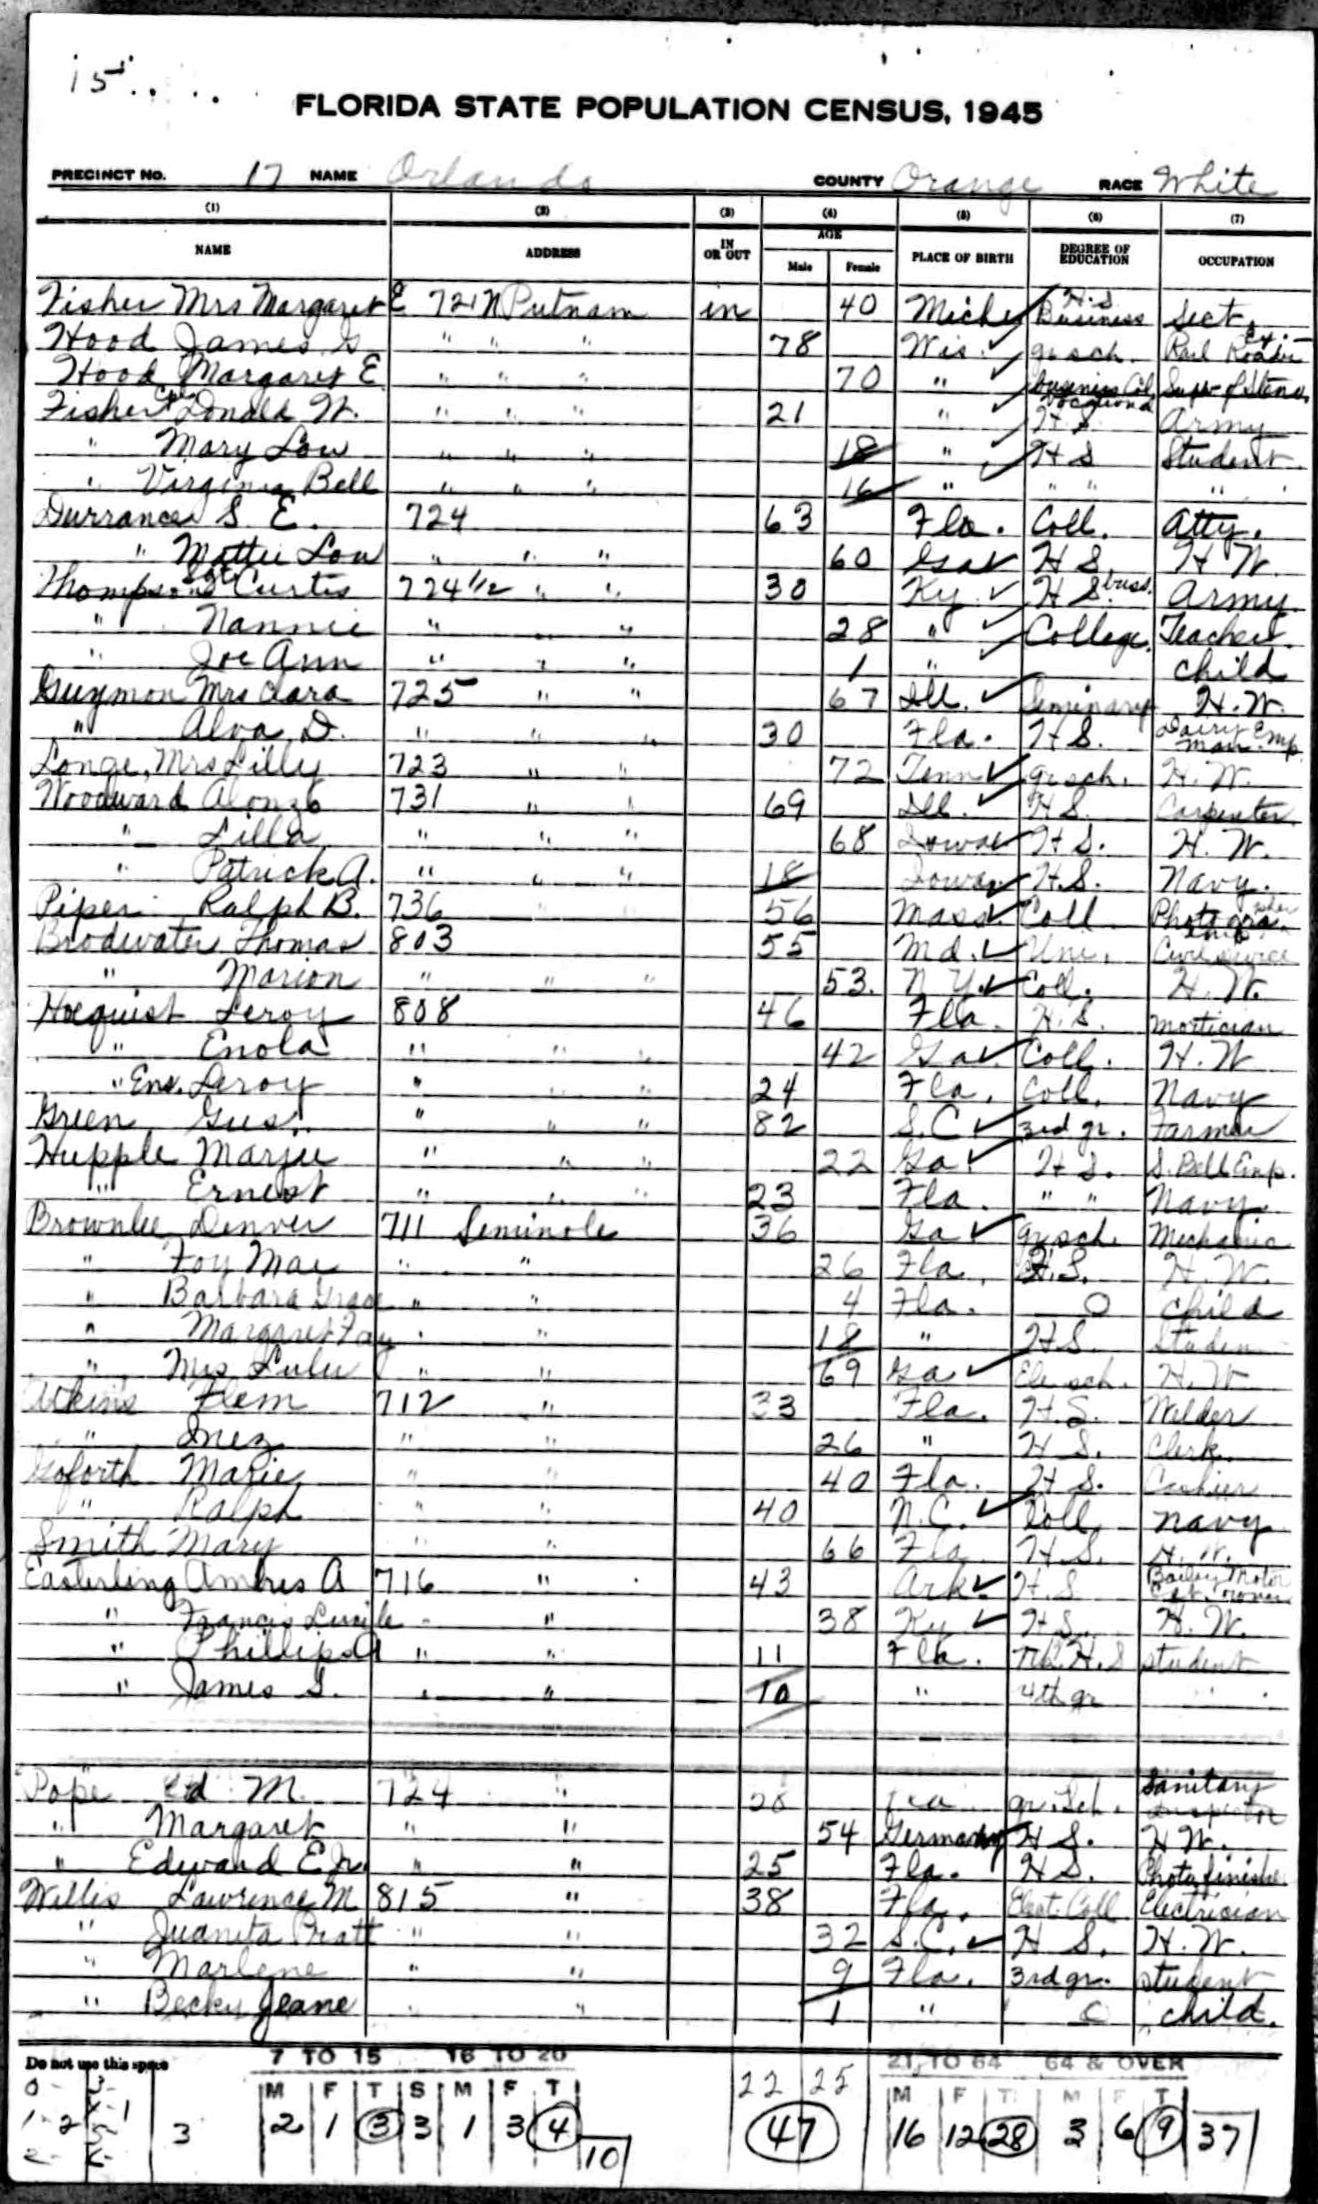 15
FLORIDA STATE POPULATION CENSUS, 1945
PRECINCT NO. 17 NAME Orlando COUNTY Orange RACE White
(1) (2) (3) (4) (5) (6) (7)
NAME ADDRESS IN OR OUT AGE Male Female PLACE OF BIRTH DEGREE OF EDUCATION OCCUPATION
Fisher Mrs Margaret E 721 N Putnam in 40 Mich H.S. Business Sect.
Hood James G. " " " 78 Wis. gr sch. Rail Roader
Hood Margaret E " " " 70 " business Col. Supr of Steno.
Fisher Cpl Donald W. " " " 21 " Vocational H S Army
" Mary Lou " " " 18 " H S Student
" Virginia Bell " " " 16 " " " "
Durrance S. E. 724 63 Fla. Coll. Atty.
" Mattie Lou " " " 60 Ga H S. H W.
Thompson Sgt Curtis 724 1/2 " " 30 Ky. H S. buss. Army
" Nannie " " " 28 " College. Teacher.
" Joe Ann " " " 1 " child
Guymon Mrs Clara 725 " " 67 Ill. Seminary H. W.
" Alva D. " " " 30 Fla. H S. Dairy Emp.
Longe, Mrs Lilly 723 " " 72 Tenn gr sch. H. W.
Woodward Alonzo 731 " " 69 Ill. H S. Carpenter
" Lilla " " " 68 Iowa H S. H. W.
" Patrick A. " " " 18 Iowa H.S. Navy.
Piper Ralph B. 736 56 Mass Coll Photographer
Brodwater Thomas 803 55 Md. Uni. Civil Service
" Marion " " " 53. N Y. Coll. H. W.
Hoequist Leroy 808 46 Fla. H. S. Mortician
" Enola " " " 42 Ga. Coll. H. W
" Ens. Leroy " " " 24 Fla. Coll. Navy
Green Gus. " " " 82 S. C 3rd gr. Farmer
Hupple Marjie " " " 22 Ga. H S. S. Bell Emp.
" Ernest " " " 23 Fla. " " Navy
Brownlee Denver 711 Seminole 36 Ga gr. sch. Mechanic
" Foy Mae " " 26 Fla. H.S. H. W.
" Barbara Grace " " 4 Fla. 0 child
" Margaret Fay " " 18 " H.S. Studen
" Mrs Lulu " " 69 Ga Ele sch. H. W
Atkins Flem 712 " 33 Fla. H. S. Welder
" Inez " " 26 " H S. Clerk.
Goforth Marie " " 40 Fla. H S. Cashier
" Ralph " " 40 N. C. Coll Navy
Smith Mary " " 66 Fla H S. H. W.
Easterling A 716 " 43 Ark. H. S Bailey Motor
" Francis Lucile " " 38 Ky H S. H. W.
" Phillips A " " 11 Fla. H. S student
" James S. " " 10 " 4th gr "
Pope Ed M. 724 " gr. Sch. Sanitary Inspector
" Margaret " " 54 Germany H S. H W.
" Edward E Jr. " " 25 Fla. H S. Photo finisher
Willis Lawrence M 815 " 38 Fla. Elect. Coll Electrician
" Juanita Pratt " " 32 S. C. H S. H. W.
" Marlene " " 9 Fla. 3rd gr. student
" Becky Jeane " " 1 " 0 child.
Do not use this space 7 TO 15 16 TO 20 22 25 21 TO 64 64 & OVER
M F T S M F T M F T M F T
3 2 1 3 3 1 3 4 10 47 16 12 28 3 6 9 37